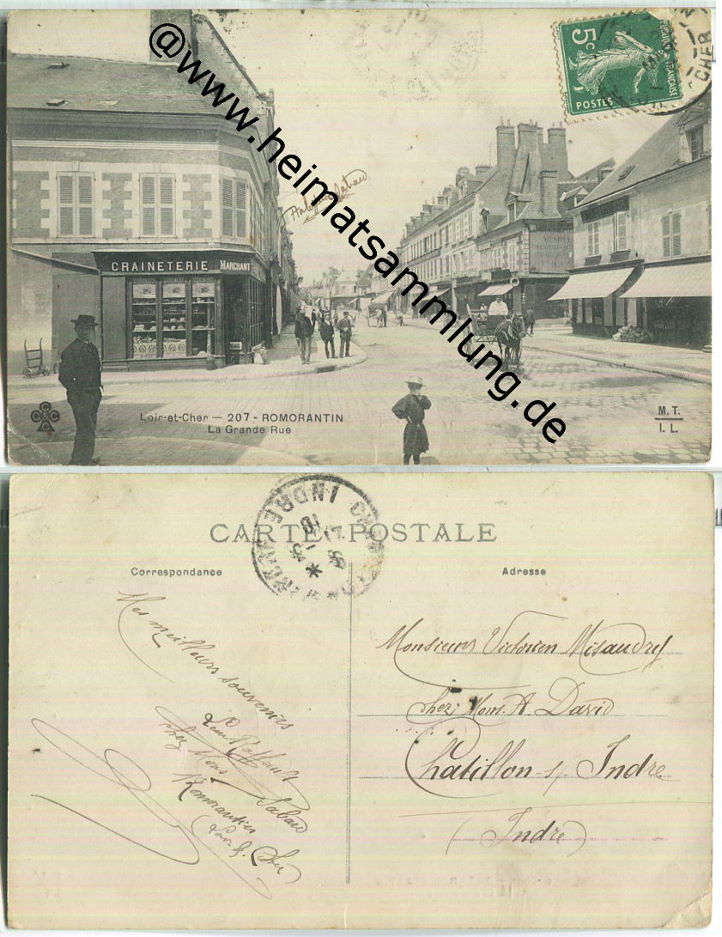 @www.heimatsammlung.de
5c
POSTES
CHER
GRAINETERIE MARCHANT
Loir-et-Cher — 207 - ROMORANTIN
La Grande Rue
M.T.
I.L.
CARTE POSTALE
INDRE
Correspondance
Adresse
Mes meilleurs souvenirs
chez Mons
Romorantin
Monsieur Victorien
chez Mons. A. David
Chatillon s/ Indre
(Indre)